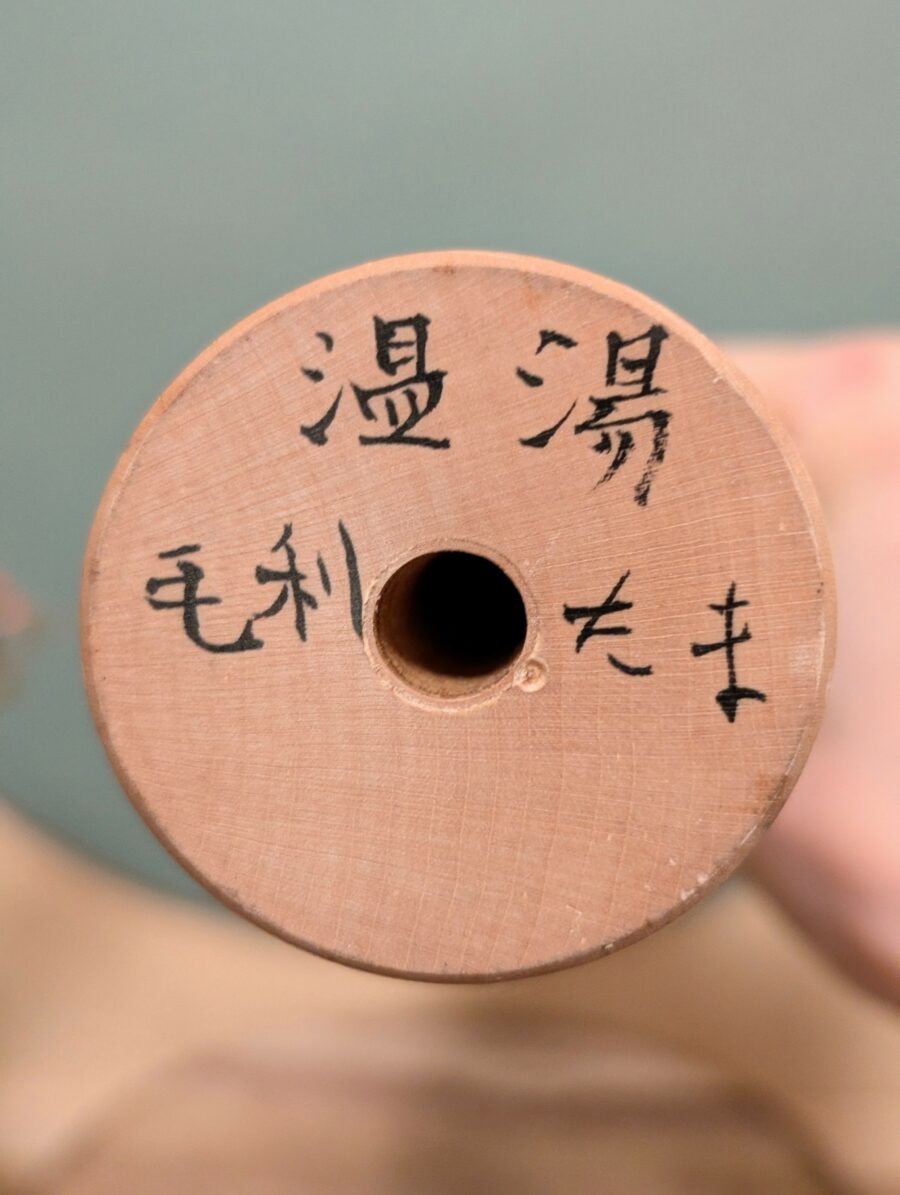 温湯
毛利たま